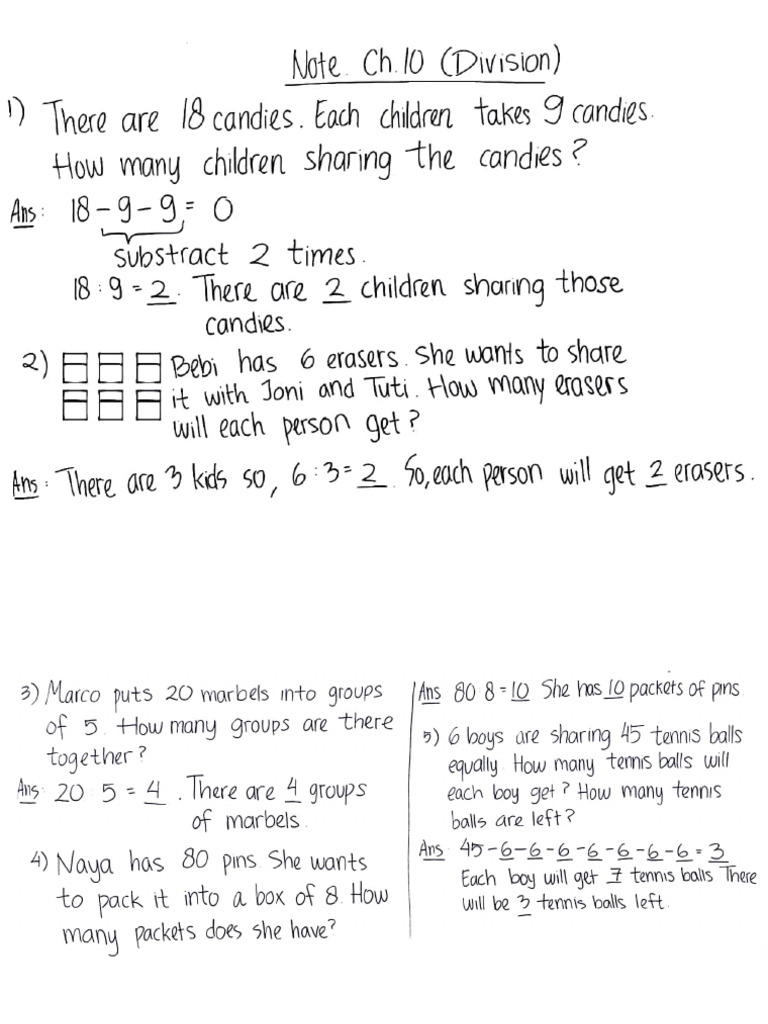 Note. Ch.10 (Division)
1) There are 18 candies. Each children takes 9 candies.
How many children sharing the candies?
Ans: 18 - 9 - 9 = 0
substract 2 times.
18 : 9 = 2. There are 2 children sharing those
candies.
2) Bebi has 6 erasers. She wants to share
it with Joni and Tuti. How many erasers
will each person get?
Ans: There are 3 kids so, 6 : 3 = 2. So, each person will get 2 erasers.
3) Marco puts 20 marbels into groups
of 5. How many groups are there
together?
Ans: 20 : 5 = 4. There are 4 groups
of marbels.
4) Naya has 80 pins. She wants
to pack it into a box of 8. How
many packets does she have?
Ans 80 8 = 10 She has 10 packets of pins
5) 6 boys are sharing 45 tennis balls
equally. How many tennis balls will
each boy get? How many tennis
balls are left?
Ans: 45 - 6 - 6 - 6 - 6 - 6 - 6 - 6 = 3
Each boy will get 7 tennis balls There
will be 3 tennis balls left.